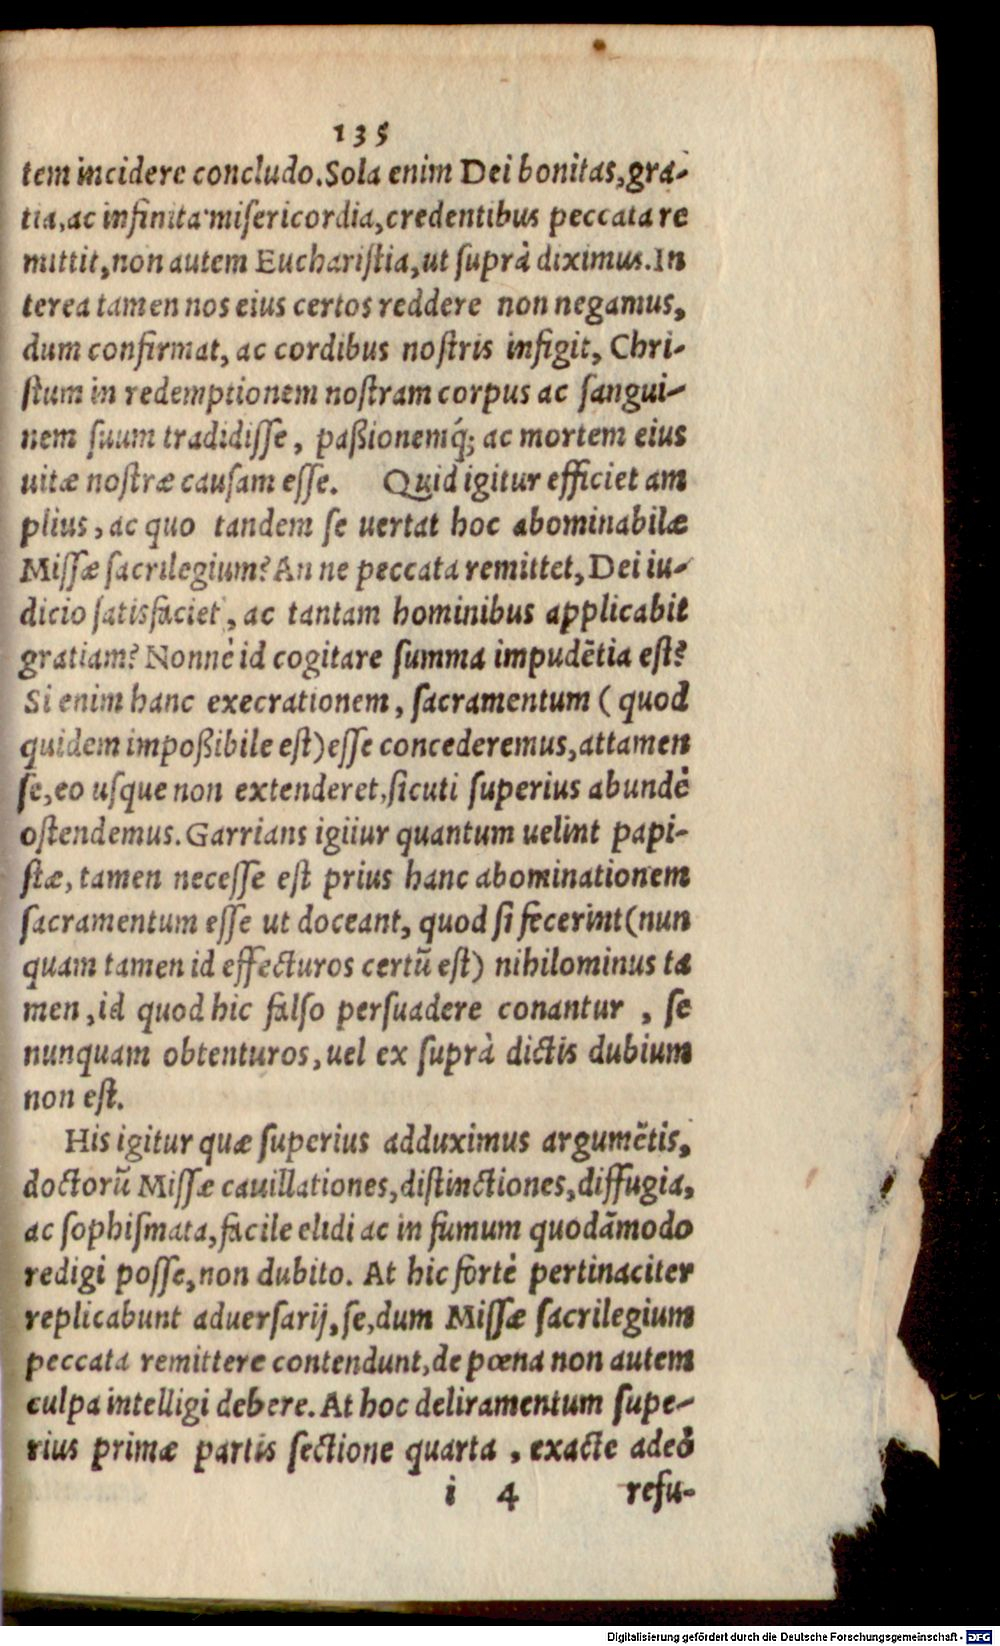 135
tem incidere concludo. Sola enim Dei bonitas, gra-
tia, ac infinita misericordia, credentibus peccata re
mittit, non autem Euchariſtia, ut ſuprà diximus. In
terea tamen nos eius certos reddere non negamus,
dum confirmat, ac cordibus noſtris infigit, Chri-
ſtum in redemptionem noſtram corpus ac ſangui-
nem ſuum tradidiſſe, paßionemq́; ac mortem eius
uitæ noſtræ cauſam eſſe. Quid igitur efficiet am
plius, ac quo tandem ſe uertat hoc abominabilæ
Miſſæ ſacrilegium? An ne peccata remittet, Dei iu-
dicio ſatisfaciet, ac tantam hominibus applicabit
gratiam? Nonnè id cogitare ſumma impudētia eſt?
Si enim hanc execrationem, ſacramentum ( quod
quidem impoßibile eſt) eſſe concederemus, attamen
ſe, eo uſque non extenderet, ſicuti ſuperius abundè
oſtendemus. Garrians igiiur quantum uelint papi-
ſtæ, tamen neceſſe eſt prius hanc abominationem
ſacramentum eſſe ut doceant, quod ſi fecerint (nun
quam tamen id effecturos certū eſt) nihilominus ta
men, id quod hic falſo perſuadere conantur , ſe
nunquam obtenturos, uel ex ſuprà dictis dubium
non eſt.
His igitur quæ ſuperius adduximus argumētis,
doctorū Miſſæ cauillationes, diſtinctiones, diffugia,
ac ſophiſmata, facile elidi ac in fumum quodāmodo
redigi poſſe, non dubito. At hic fortè pertinaciter
replicabunt aduerſarij, ſe, dum Miſſæ ſacrilegium
peccata remittere contendunt, de pœna non autem
culpa intelligi debere. At hoc deliramentum ſupe-
rius primæ partis ſectione quarta , exacte adeò
i 4 refu-
Digitalisierung gefördert durch die Deutsche Forschungsgemeinschaft - DFG